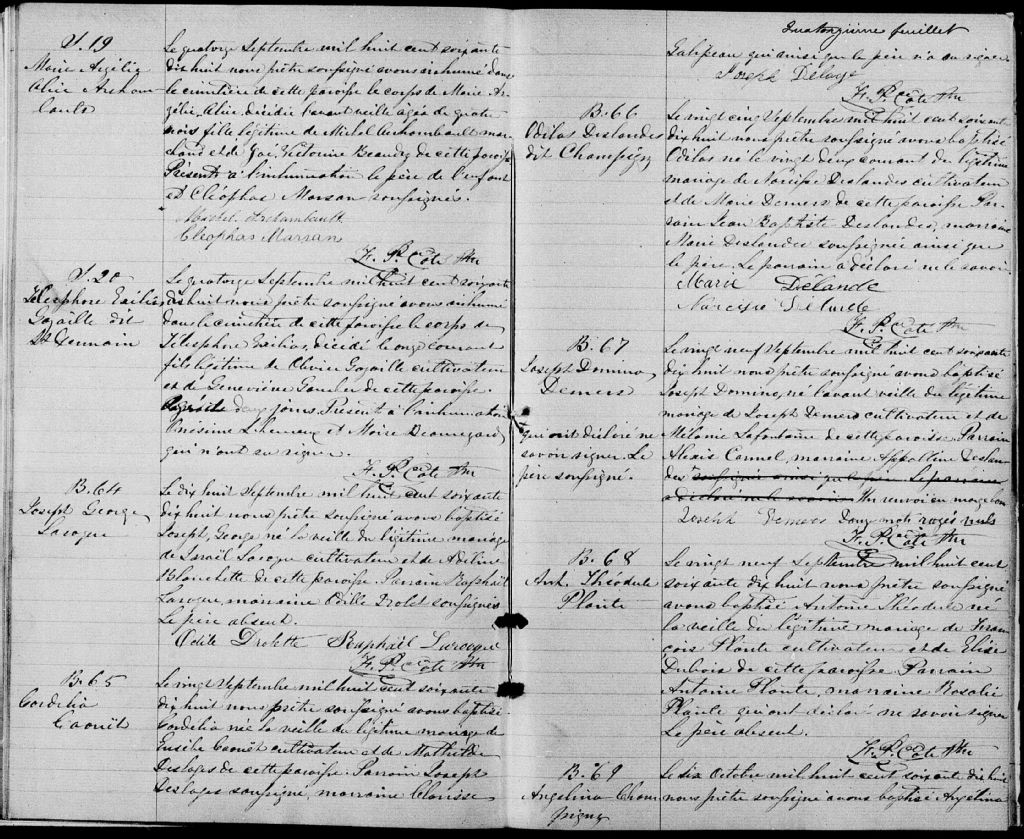 S. 19
Marie Argélie
Alice Archam-
bault
Le quatorze Septembre mil huit cent soixante
dix huit nous prêtre soussigné avons inhumé dans
le cimitière de cette paroisse le corps de Marie Ar-
gélie, Alice, décédée l'avant veille agée de quatre
mois fille légitime de Michel Archambault mar-
chand et de Zoé, Victorine Beaudry de cette paroisse
Présents à l'inhumation le père de l'enfant
et Cléophas Marsan soussignés.
Michel Archambault
Cléophas Marsan
F. P. Côté Ptre
S. 20
Télesphore Exilias
Gazaille dit
St Germain
Le quatorze Septembre mil huit cent soixante
dix huit nous prêtre soussigné avons inhumé
dans le cimitière de cette paroisse le corps de
Télesphore Exilias, décédé le onze courant
fils légitime de Olivier Gazaille cultivateur
et de Geneviève de cette paroisse.
deux jours. Présent à l'inhumation
Onésime et Moïse Beauregard
qui n'ont su signer.
F. P. Côté Ptre
B. 64
Joseph George
Laroque
Le dix huit Septembre mil huit cent soixante
dix huit nous prêtre soussigné avons baptisé
Joseph, George né la veille du légitime mariage
de Israël Laroque cultivateur et de Adeline
Blanchette de cette paroisse Parrain Raphaël
Laroque, marraine Odille Drolet soussignés
Le père absent.
Odile Drolette Raphaël Larocque
F. P. Côté Ptre
B. 65
Cordelia
Caouët
Le vingt Septembre mil huit cent soixante
dix huit nous prêtre soussigné avons baptisé
Cordelia née la veille du légitime mariage de
Eusèbe Caouët cultivateur et de Mathilde
Deslages de cette paroisse. Parrain Joseph
Deslages soussigné, marraine Clarisse
Quatorzième feuillet
Galipeau qui ainsi que le père n'a su signer
Joseph Deloge
F. P. Côté Ptre
B. 66
Odilas Deslandes
dit Champigny
Le vingt cinq Septembre mil huit cent soixante
dix huit nous prêtre soussigné avons baptisé
Odilas né le vingt deux courant du légitime
mariage de Narcisse Deslandes cultivateur
et de Marie Demers de cette paroisse Par-
rain Jean Baptiste Deslandes, marraine
Marie Deslandes soussignée ainsi que
le père. Le parrain a déclaré ne le savoir.
Marie Délande
Narcisse Delande
F. P. Côté Ptre
B. 67
Joseph Domino
Demers
qui ont déclaré ne
savoir signer. Le
père soussigné.
Le vingt neuf Septembre mil huit cent soixante
dix huit nous prêtre soussigné avons baptisé
Joseph Domino, né l'avant veille du légitime
mariage de Joseph Demers cultivateur et de
Mélanie Lafontaine de cette paroisse. Parrain
Alexis marraine Appolline Deslan-
des soussignée ainsi que le père. Le parrain
a déclaré ne le savoir. Un renvoi en marge bon
Joseph Demers Douze mots rayés nuls
F. P. Côté Ptre
B. 68
Ant. Théodule
Plante
Le vingt neuf Septembre mil huit cent
soixante dix huit nous prêtre soussigné
avons baptisé Antoine Théodule né
la veille du légitime mariage de Fran-
çois Plante cultivateur et de Elise
Dubois de cette paroisse. Parrain
Antoine Plante, marraine Rosalie
Plante qui ont déclaré ne savoir signer
Le père absent.
F. P. Côté Ptre
B. 69
Angelina Cham-
pigny
Le six Octobre mil huit cent soixante dix huit
nous prêtre soussigné avons baptisé Angelina